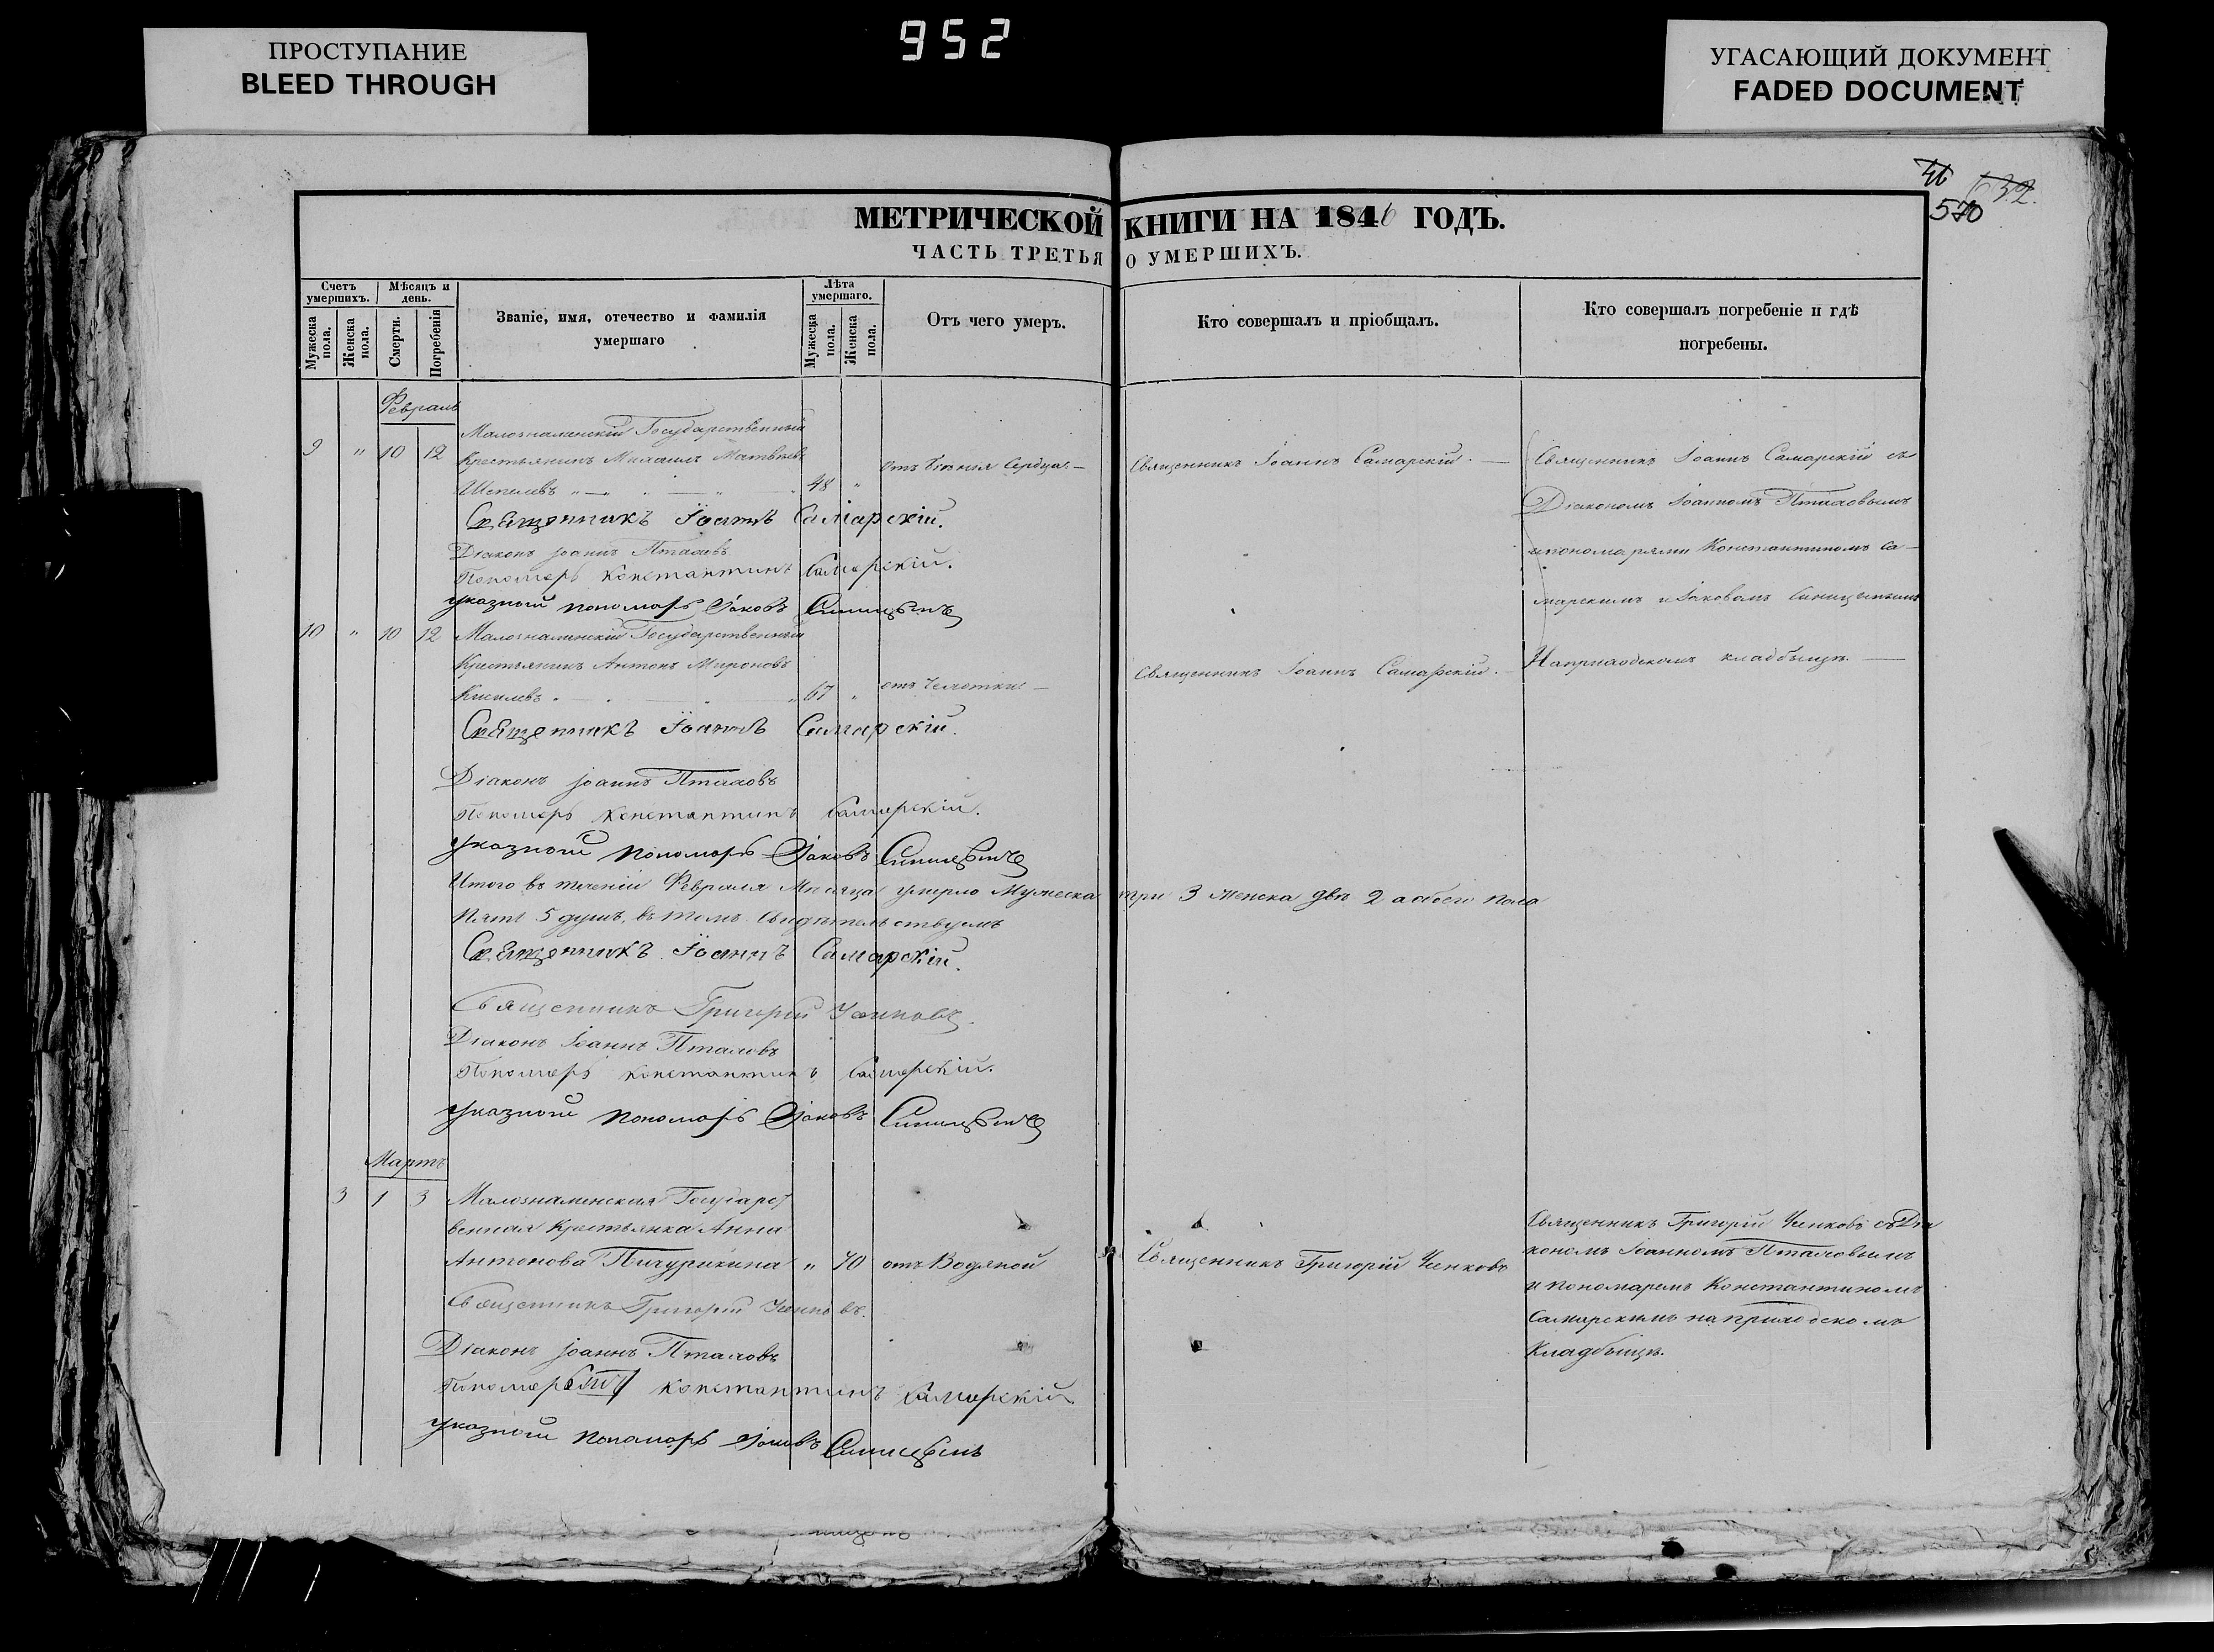 ПРОСТУПАНИЕ
BLEED THROUGH
952
УГАСАЮЩИЙ ДОКУМЕНТ
FADED DOCUMENT
46 632.
570
МЕТРИЧЕСКОЙ КНИГИ НА 1846 ГОДЪ.
ЧАСТЬ ТРЕТЬЯ О УМЕРШИХЪ.
Счетъ умершихъ.
Мужеска пола.
Женска пола.
Мѣсяцъ и день.
Смерти.
Погребенія
Званіе, имя, отечество и фамилія
умершаго
Лѣта умершаго.
Мужеска пола.
Женска пола.
Отъ чего умеръ.
Кто совершалъ и пріобщалъ.
Кто совершалъ погребеніе и гдѣ
погребены.
Февраль
9 " 10 12 Малознаменскій Государственный
Крестьянинъ Михаилъ Матвѣевъ
Шепелевъ 48 " отъ біенія Сердца.
Священникъ Іоаннъ Самарскій.
Священникъ Іоаннъ Самарскій съ
Діакономъ Іоанномъ Пталовымъ
и пономарями Константиномъ Са-
марскимъ и Іаковомъ Синицынымъ
На приходскомъ кладбищѣ.
Священникъ Іоаннъ Самарскій.
Діаконъ Іоаннъ Пталовъ
Пономарь Константинъ Самарскій.
указной пономарь Іаковъ Синицынъ
10 " 10 12 Малознаменскій Государственный
Крестьянинъ Антонъ Мироновъ
Киселевъ 67 " отъ Чахотки
Священникъ Іоаннъ Самарскій.
Священникъ Іоаннъ Самарскій.
Діаконъ Іоаннъ Пталовъ
Пономарь Константинъ Самарскій.
указной пономарь Іаковъ Синицынъ
Итого въ теченіи Февраля Мѣсяца умерло Мужеска три 3 женска двѣ 2 а обоего пола
пять 5 душъ, въ томъ свидѣтельствуемъ
Священникъ Іоаннъ Самарскій.
Священникъ Григорій
Діаконъ Іоаннъ Пталовъ
Пономарь Константинъ Самарскій.
указной пономарь Іаковъ Синицынъ
Мартъ
3 1 3 Малознаменская Государст
венная Крестьянка Анна
Антонова Пичурикина " 70 отъ Водяной
Священникъ Григорій
Священникъ Григорій съ Діа
кономъ Іоанномъ Пталовымъ
и пономаремъ Константиномъ
Самарскимъ на приходскомъ
Кладбищѣ.
Священникъ Григорій
Діаконъ Іоаннъ Пталовъ
Пономарь Константинъ Самарскій
указной пономарь Іаковъ Синицынъ